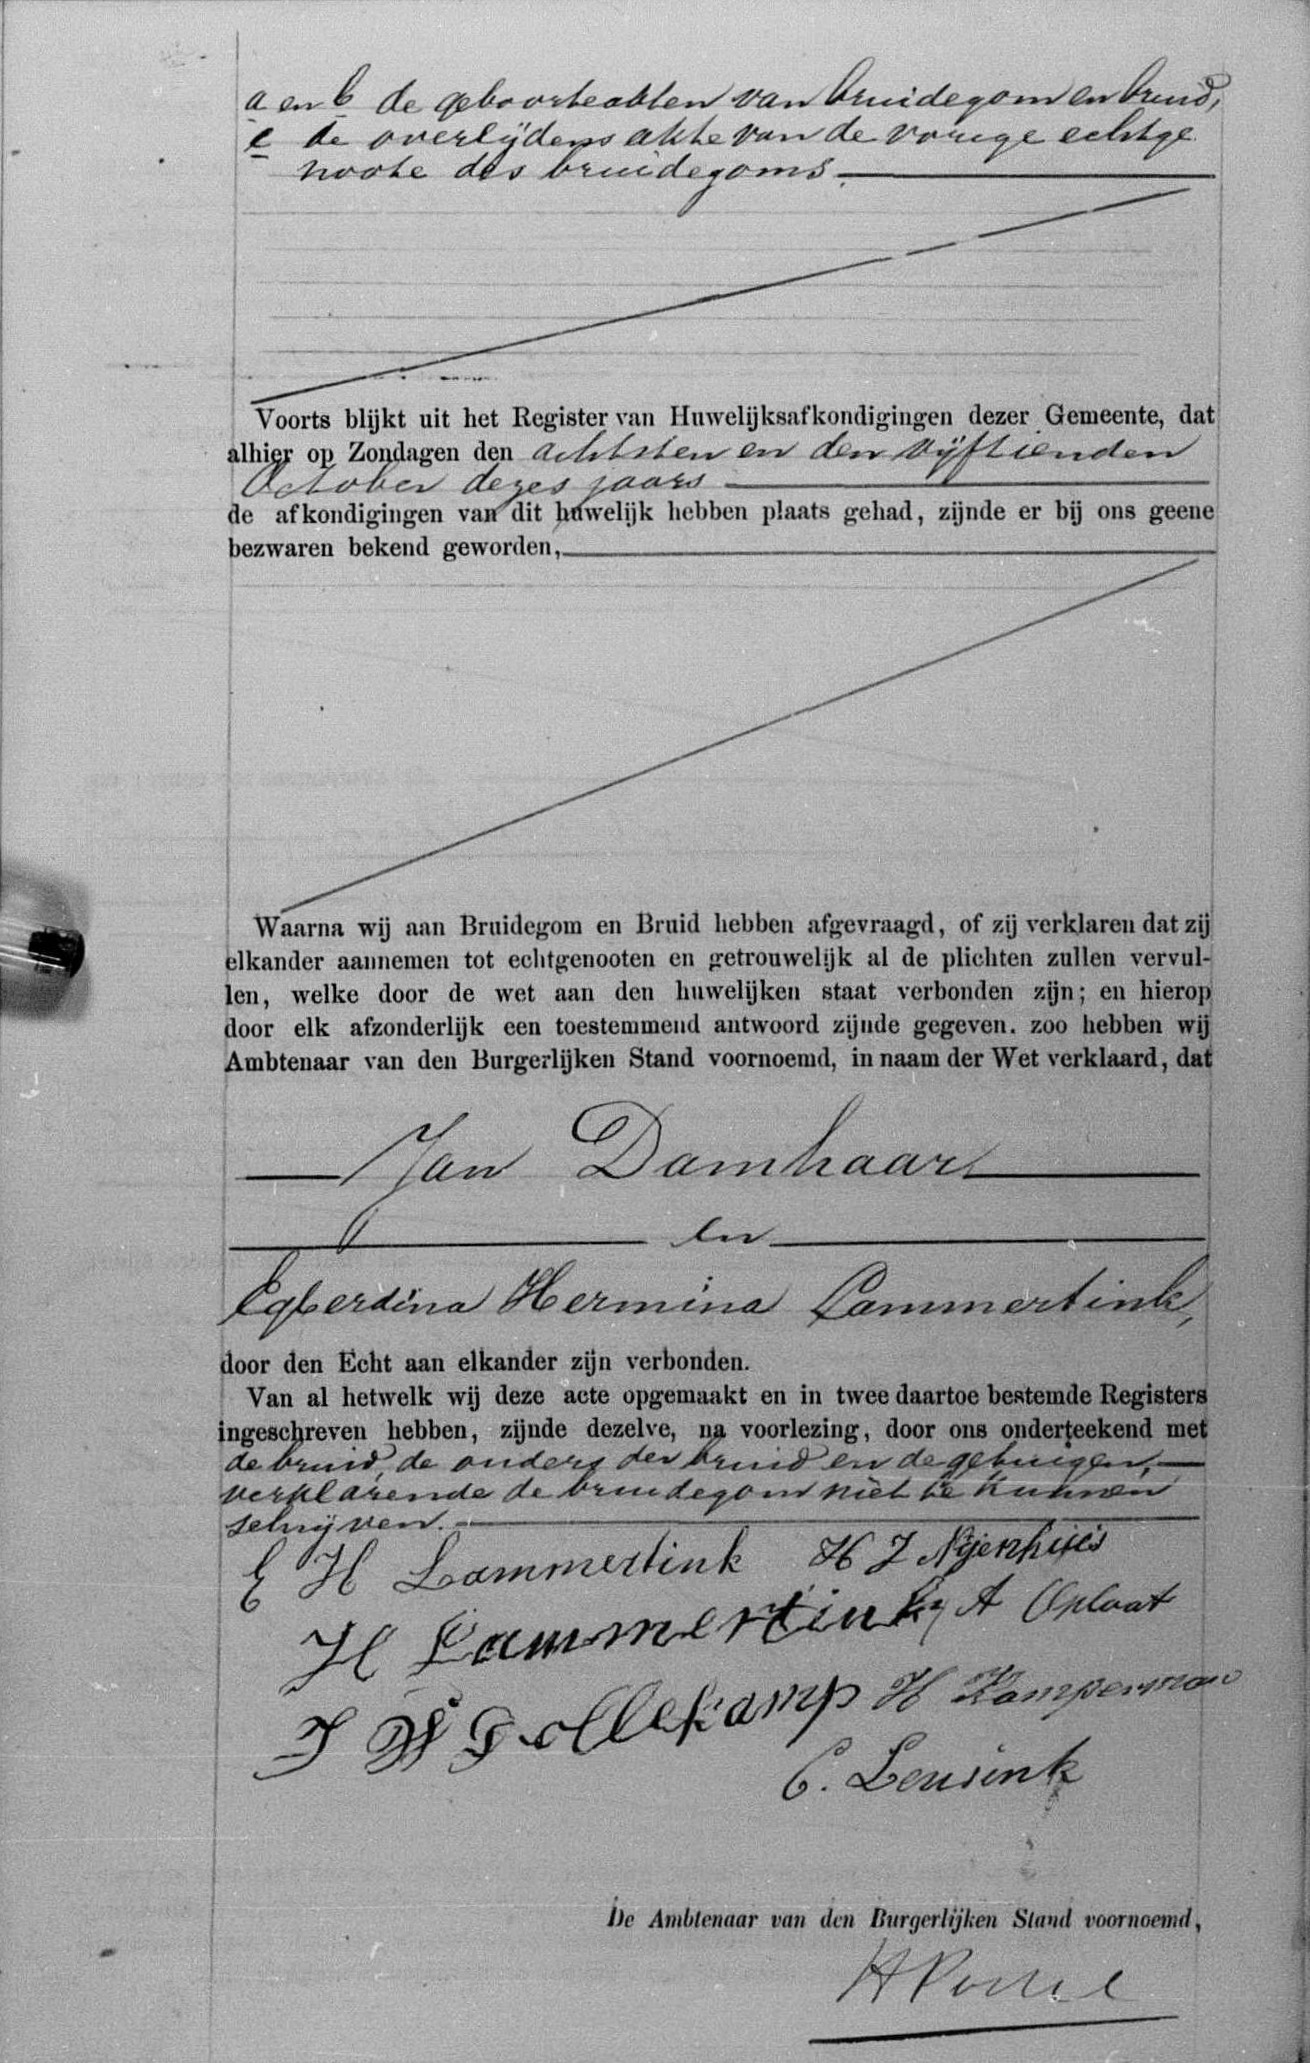 a en b de geboorteakten van bruidegom en bruid,
c de overlijdens akte van de vorige echtge
noote des bruidegoms.
Voorts blijkt uit het Register van Huwelijksafkondigingen dezer Gemeente, dat
alhier op Zondagen den achtsten en den vijftienden
October dezes jaars
de afkondigingen van dit huwelijk hebben plaats gehad, zijnde er bij ons geene
bezwaren bekend geworden,
Waarna wij aan Bruidegom en Bruid hebben afgevraagd, of zij verklaren dat zij
elkander aannemen tot echtgenooten en getrouwelijk al de plichten zullen vervul-
len, welke door de wet aan den huwelijken staat verbonden zijn; en hierop
door elk afzonderlijk een toestemmend antwoord zijnde gegeven. zoo hebben wij
Ambtenaar van den Burgerlijken Stand voornoemd, in naam der Wet verklaard, dat
Jan Damhaar
en
Egberdina Hermina Lammertink,
door den Echt aan elkander zijn verbonden.
Van al hetwelk wij deze acte opgemaakt en in twee daartoe bestemde Registers
ingeschreven hebben, zijnde dezelve, na voorlezing, door ons onderteekend met
de bruid, de ouders der bruid en de getuigen,
verklarende de bruidegom niet te kunnen
schrijven.
E H Lammertink H J Nijenhuis
H Lammertink A Oplaat
J W Gollekamp H Kamperman
C. Leusink
De Ambtenaar van den Burgerlijken Stand voornoemd,